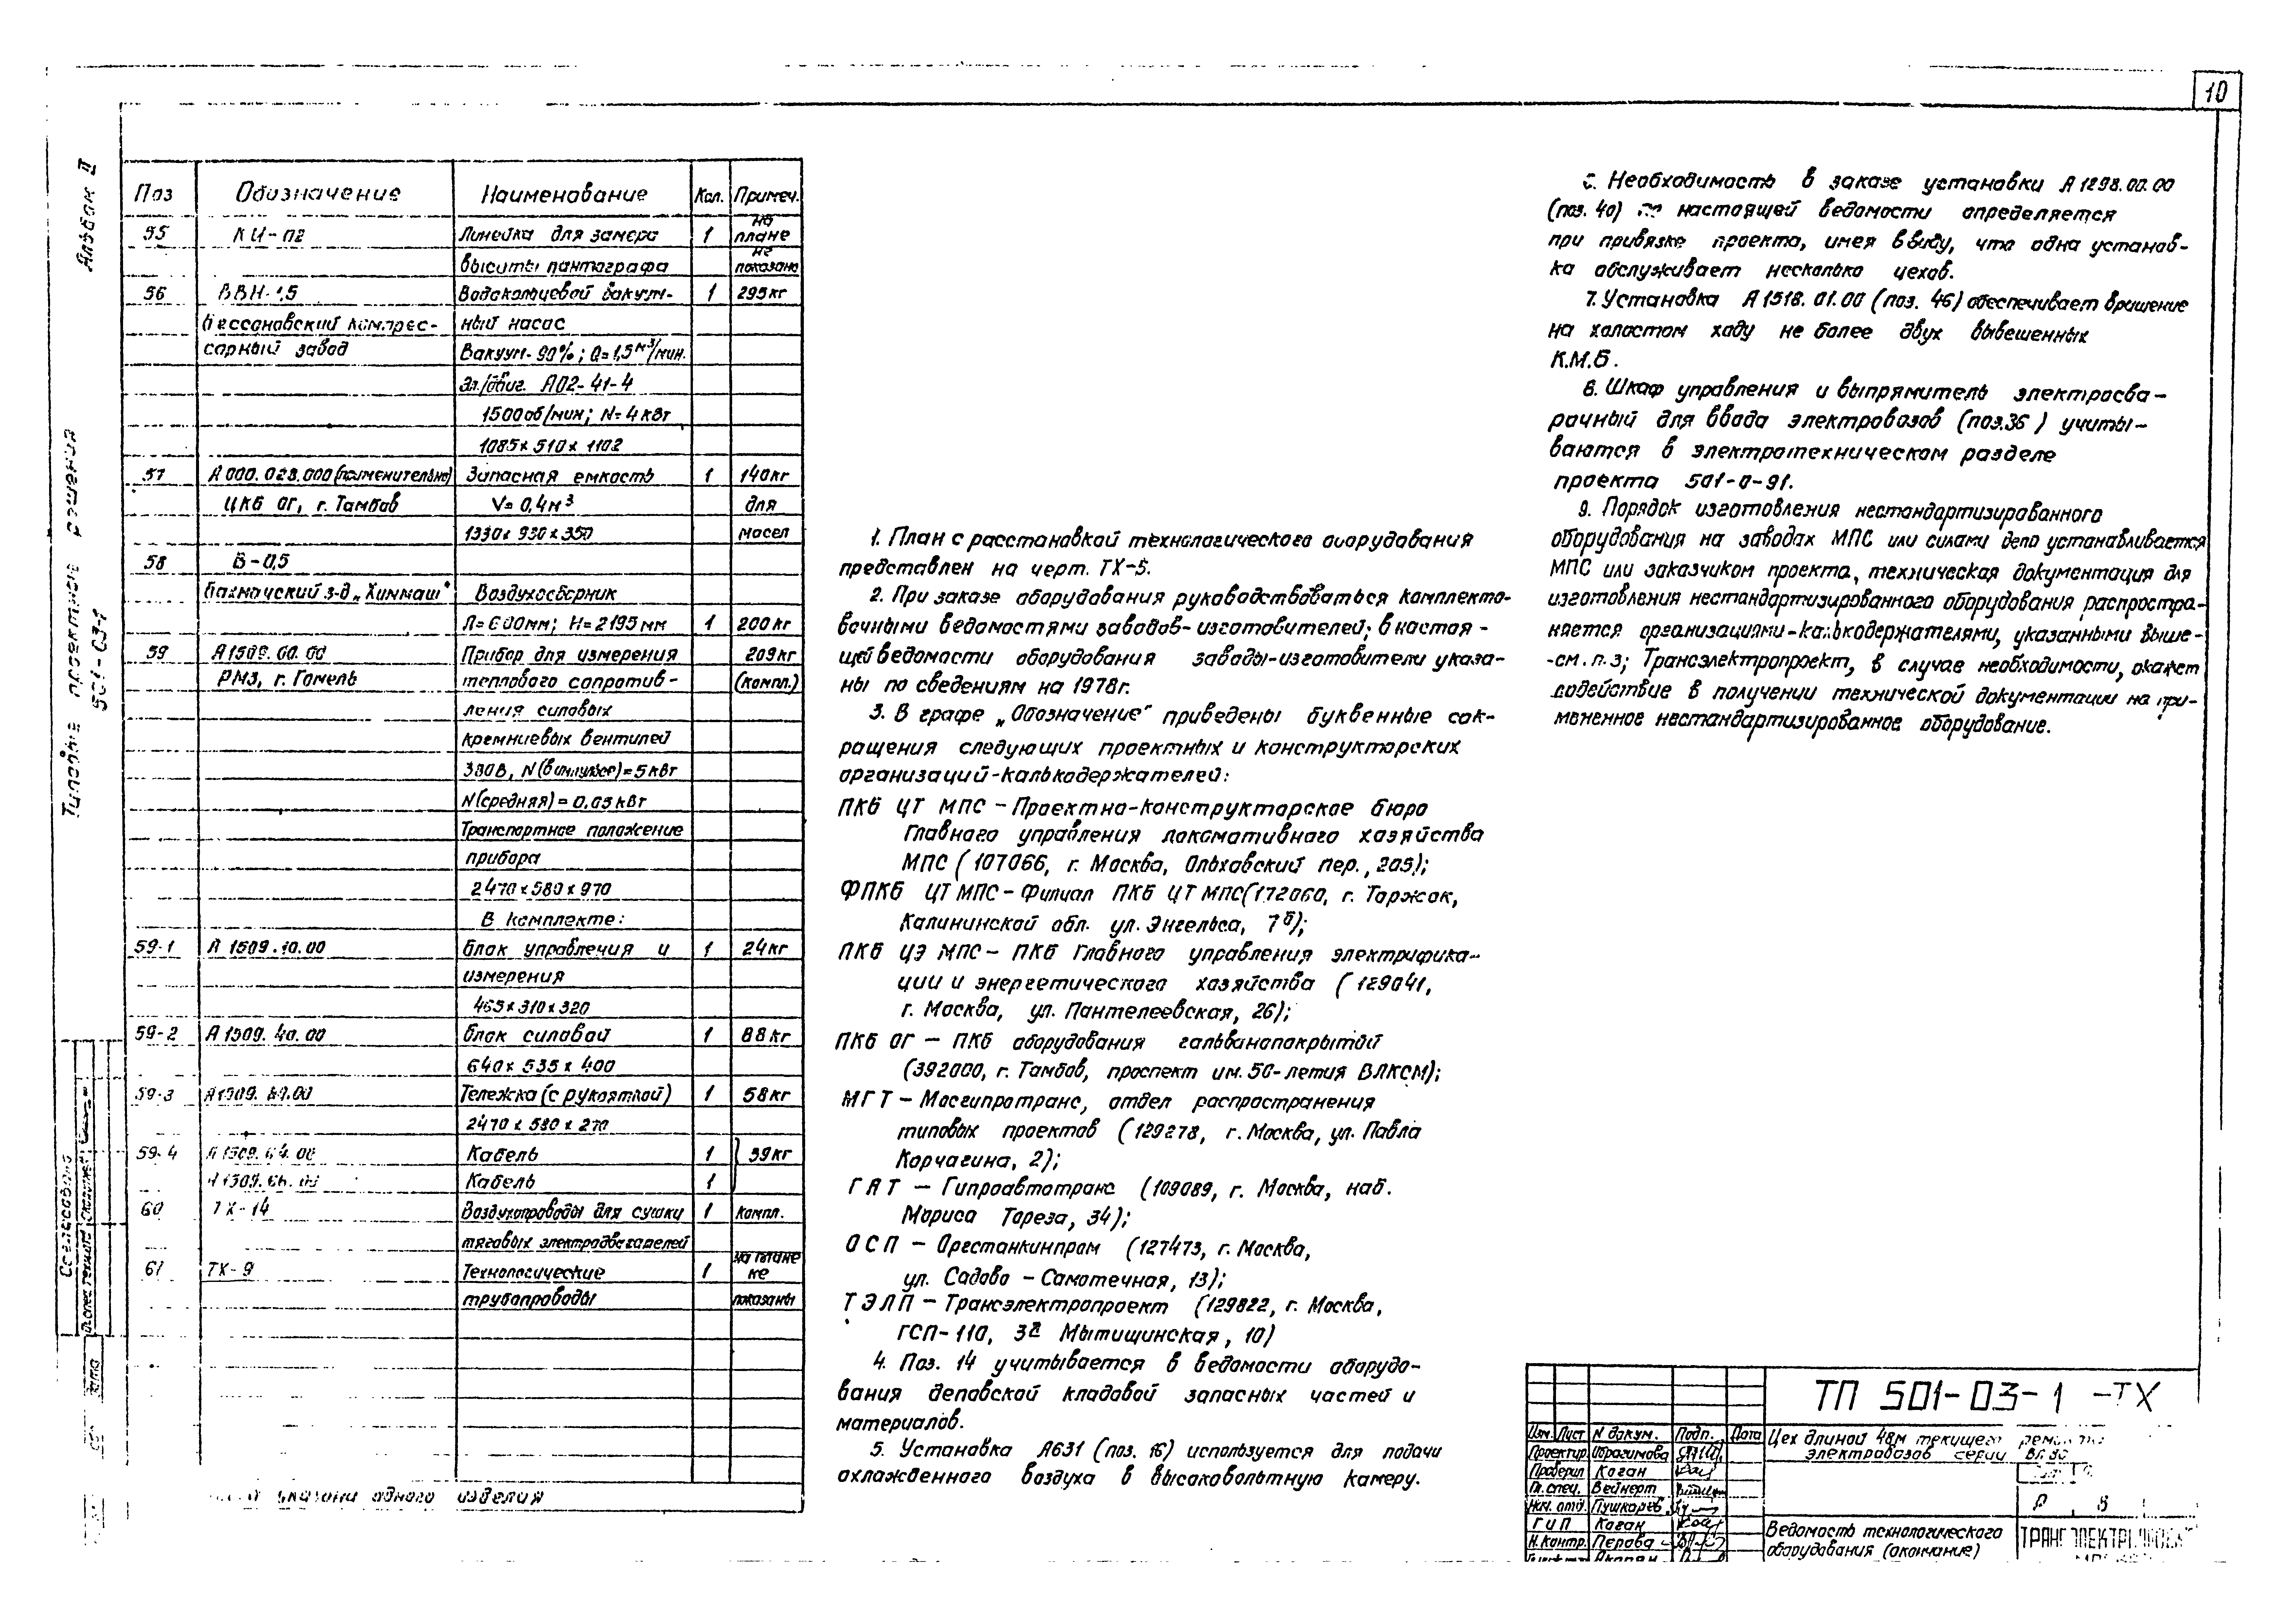 10
Альбом II
Типовые проектные решения
501-03-1
Поз Обозначение Наименование Кол. Примеч.
55 КИ-02 Линейка для замера 1 на плане
высоты пантографа не показано
56 ВВН-1,5 Водокольцевой вакуум- 1 295кг
Бессоновский компрес- ный насос
сорный завод Вакуум-90%; Q=1,5м³/мин.
Эл./двиг. АО2-41-4
1500об/мин; N=4кВт
1085х510х1102
57 А000.028.000(применительно) Запасная емкость 1 140кг
ЦКБ ОГ, г. Тамбов V=0,4м³ для
1330х930х350 масел
58 В-0,5
з-д „Химмаш" Воздухосборник
Д=600мм; Н=2195мм 1 200кг
59 А1509.00.00 Прибор для измерения 209кг
РМЗ, г. Гомель теплового сопротив- (компл.)
ления силовых
кремниевых вентилей
380В, N(в импульсе)=5кВт
N(средняя)=0,05кВт
Транспортное положение
прибора
2470х580х970
В комплекте:
59-1 А1509.10.00 Блок управления и 1 24кг
измерения
465х310х320
59-2 А1509.40.00 Блок силовой 1 88кг
640х535х400
59-3 А1509. .00 Тележка (с рукояткой) 1 58кг
2470х580х270
59-4 А1509.64.00 Кабель 1 39кг
А1509.66.00 Кабель 1
60 ТХ-14 Воздухопроводы для сушки 1 компл.
тяговых электродвигателей
61 ТХ-9 Технологические 1 на плане не
трубопроводы показаны
указана одного изделия
1. План с расстановкой технологического оборудования
представлен на черт. ТХ-5.
2. При заказе оборудования руководствоваться комплекто-
вочными ведомостями заводов-изготовителей; в настоя-
щей ведомости оборудования заводы-изготовители указа-
ны по сведениям на 1978г.
3. В графе „Обозначение" приведены буквенные сок-
ращения следующих проектных и конструкторских
организаций-калькодержателей:
ПКБ ЦТ МПС – Проектно-конструкторское бюро
Главного управления локомотивного хозяйства
МПС (107066, г. Москва, Ольховский пер., 205);
ФПКБ ЦТ МПС – Филиал ПКБ ЦТ МПС(172060, г. Торжок,
Калининской обл. ул. Энгельса, 7б);
ПКБ ЦЭ МПС – ПКБ Главного управления электрифика-
ции и энергетического хозяйства (129041,
г. Москва, ул. Пантелеевская, 26);
ПКБ ОГ – ПКБ оборудования гальванопокрытой
(392000, г. Тамбов, проспект им. 50-летия ВЛКСМ);
МГТ – Мосгипротранс, отдел распространения
типовых проектов (129278, г. Москва, ул. Павла
Корчагина, 2);
ГАТ – Гипроавтотранс (109089, г. Москва, наб.
Мориса Тореза, 34);
ОСП – Оргстанкинпром (127473, г. Москва,
ул. Садово-Самотечная, 13);
ТЭЛП – Трансэлектропроект (129822, г. Москва,
ГСП-110, 3я Мытищинская, 10)
4. Поз. 14 учитывается в ведомости оборудо-
вания деповской кладовой запасных частей и
материалов.
5. Установка А631 (поз. 16) используется для подачи
охлажденного воздуха в высоковольтную камеру.
6. Необходимость в заказе установки А1298.00.00
(поз. 40) по настоящей ведомости определяется
при привязке проекта, имея ввиду, что одна установ-
ка обслуживает несколько цехов.
7. Установка А1518.01.00 (поз. 46) обеспечивает вращение
на холостом ходу не более двух вывешенных
К.М.Б.
8. Шкаф управления и выпрямитель электросва-
рочный для ввода электровозов (поз.36) учиты-
ваются в электротехническом разделе
проекта 501-0-91.
9. Порядок изготовления нестандартизированного
оборудования на заводах МПС или силами депо устанавливается
МПС или заказчиком проекта, техническая документация для
изготовления нестандартизированного оборудования распростра-
няется организациями-калькодержателями, указанными выше-
-см.п.3; Трансэлектропроект, в случае необходимости, окажет
содействие в получении технической документации на при-
мененное нестандартизированное оборудование.
Согласовано
ТП 501-03-1 -ТХ
Изм. Лист N докум. Подп. Дата
Проектир. Ибрагимова
Проверил Коган
Гл. спец. Вейнерт
Нач. отд. Пушкарев
ГИП Коган
Н.контр. Перова
Цех длиной 48м текущего ремонта
электровозов серии ВЛ80
Р 8
Ведомость технологического
оборудования (окончание)
ТРАНСЭЛЕКТРОПРОЕКТ